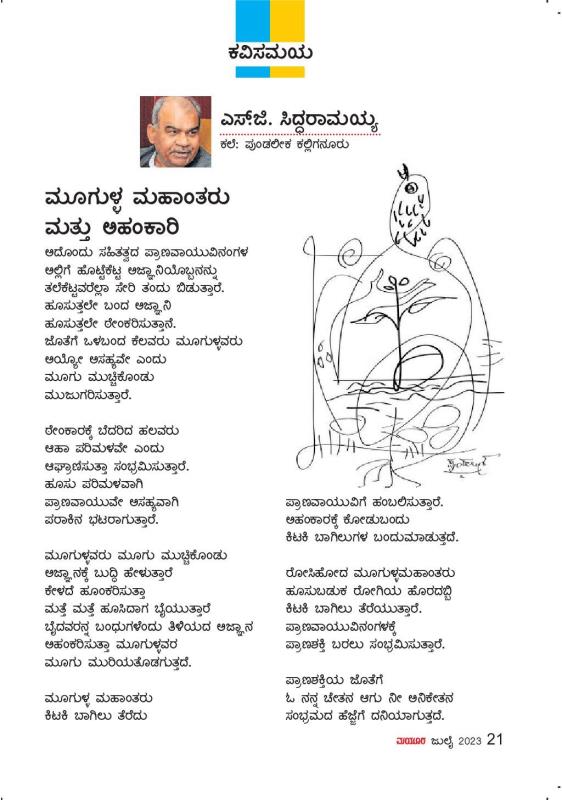 ಕವಿಸಮಯ
ಎಸ್‌ಜಿ. ಸಿದ್ಧರಾಮಯ್ಯ
ಕಲೆ: ಪುಂಡಲೀಕ ಕಲ್ಲಿಗನೂರು
ಮೂಗುಳ್ಳ ಮಹಾಂತರು
ಮತ್ತು ಅಹಂಕಾರಿ
ಅದೊಂದು ಸಹಿತತ್ವದ ಪ್ರಾಣವಾಯುವಿನಂಗಳ
ಅಲ್ಲಿಗೆ ಹೊಟ್ಟೆಕೆಟ್ಟ ಅಜ್ಞಾನಿಯೊಬ್ಬನನ್ನು
ತಲೆಕೆಟ್ಟವರೆಲ್ಲಾ ಸೇರಿ ತಂದು ಬಿಡುತ್ತಾರೆ.
ಹೂಸುತ್ತಲೇ ಬಂದ ಅಜ್ಞಾನಿ
ಹೂಸುತ್ತಲೇ ಠೇಂಕರಿಸುತ್ತಾನೆ.
ಜೊತೆಗೆ ಒಳಬಂದ ಕೆಲವರು ಮೂಗುಳ್ಳವರು
ಅಯ್ಯೋ ಅಸಹ್ಯವೇ ಎಂದು
ಮೂಗು ಮುಚ್ಚಿಕೊಂಡು
ಮುಜುಗರಿಸುತ್ತಾರೆ.
ಠೇಂಕಾರಕ್ಕೆ ಬೆದರಿದ ಹಲವರು
ಆಹಾ ಪರಿಮಳವೇ ಎಂದು
ಆಘ್ರಾಣಿಸುತ್ತಾ ಸಂಭ್ರಮಿಸುತ್ತಾರೆ.
ಹೂಸು ಪರಿಮಳವಾಗಿ
ಪ್ರಾಣವಾಯುವೇ ಅಸಹ್ಯವಾಗಿ
ಪರಾಕಿನ ಭಟರಾಗುತ್ತಾರೆ.
ಮೂಗುಳ್ಳವರು ಮೂಗು ಮುಚ್ಚಿಕೊಂಡು
ಅಜ್ಞಾನಕ್ಕೆ ಬುದ್ಧಿ ಹೇಳುತ್ತಾರೆ
ಕೇಳದೆ ಹೂಂಕರಿಸುತ್ತಾ
ಮತ್ತೆ ಮತ್ತೆ ಹೂಸಿದಾಗ ಬೈಯುತ್ತಾರೆ
ಬೈದವರನ್ನ ಬಂಧುಗಳೆಂದು ತಿಳಿಯದ ಅಜ್ಞಾನ
ಅಹಂಕರಿಸುತ್ತಾ ಮೂಗುಳ್ಳವರ
ಮೂಗು ಮುರಿಯತೊಡಗುತ್ತದೆ.
ಮೂಗುಳ್ಳ ಮಹಾಂತರು
ಕಿಟಕಿ ಬಾಗಿಲು ತೆರೆದು
ಪ್ರಾಣವಾಯುವಿಗೆ ಹಂಬಲಿಸುತ್ತಾರೆ.
ಅಹಂಕಾರಕ್ಕೆ ಕೋಡುಬಂದು
ಕಿಟಕಿ ಬಾಗಿಲುಗಳ ಬಂದುಮಾಡುತ್ತದೆ.
ರೋಸಿಹೋದ ಮೂಗುಳ್ಳಮಹಾಂತರು
ಹೂಸುಬಡುಕ ರೋಗಿಯ ಹೊರದಬ್ಬಿ
ಕಿಟಕಿ ಬಾಗಿಲು ತೆರೆಯುತ್ತಾರೆ.
ಪ್ರಾಣವಾಯುವಿನಂಗಳಕ್ಕೆ
ಪ್ರಾಣಶಕ್ತಿ ಬರಲು ಸಂಭ್ರಮಿಸುತ್ತಾರೆ.
ಪ್ರಾಣಶಕ್ತಿಯ ಜೊತೆಗೆ
ಓ ನನ್ನ ಚೇತನ ಆಗು ನೀ ಅನಿಕೇತನ
ಸಂಭ್ರಮದ ಹೆಜ್ಜೆಗೆ ದನಿಯಾಗುತ್ತದೆ.
ಮಯೂರ ಜುಲೈ 2023 21